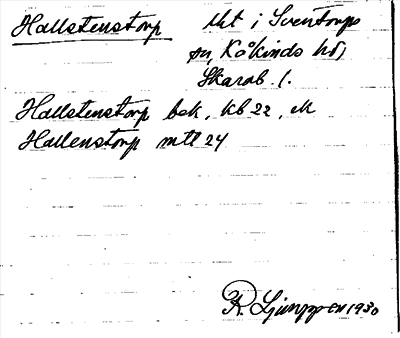 Hallstenstorp Ukt i Sventorps
sn, Kåkinds hd,
Skarab. l.
Hallstenstorp bek, kb 22, ek
Hallenstorp mtl 24
R. Ljunggren 1930